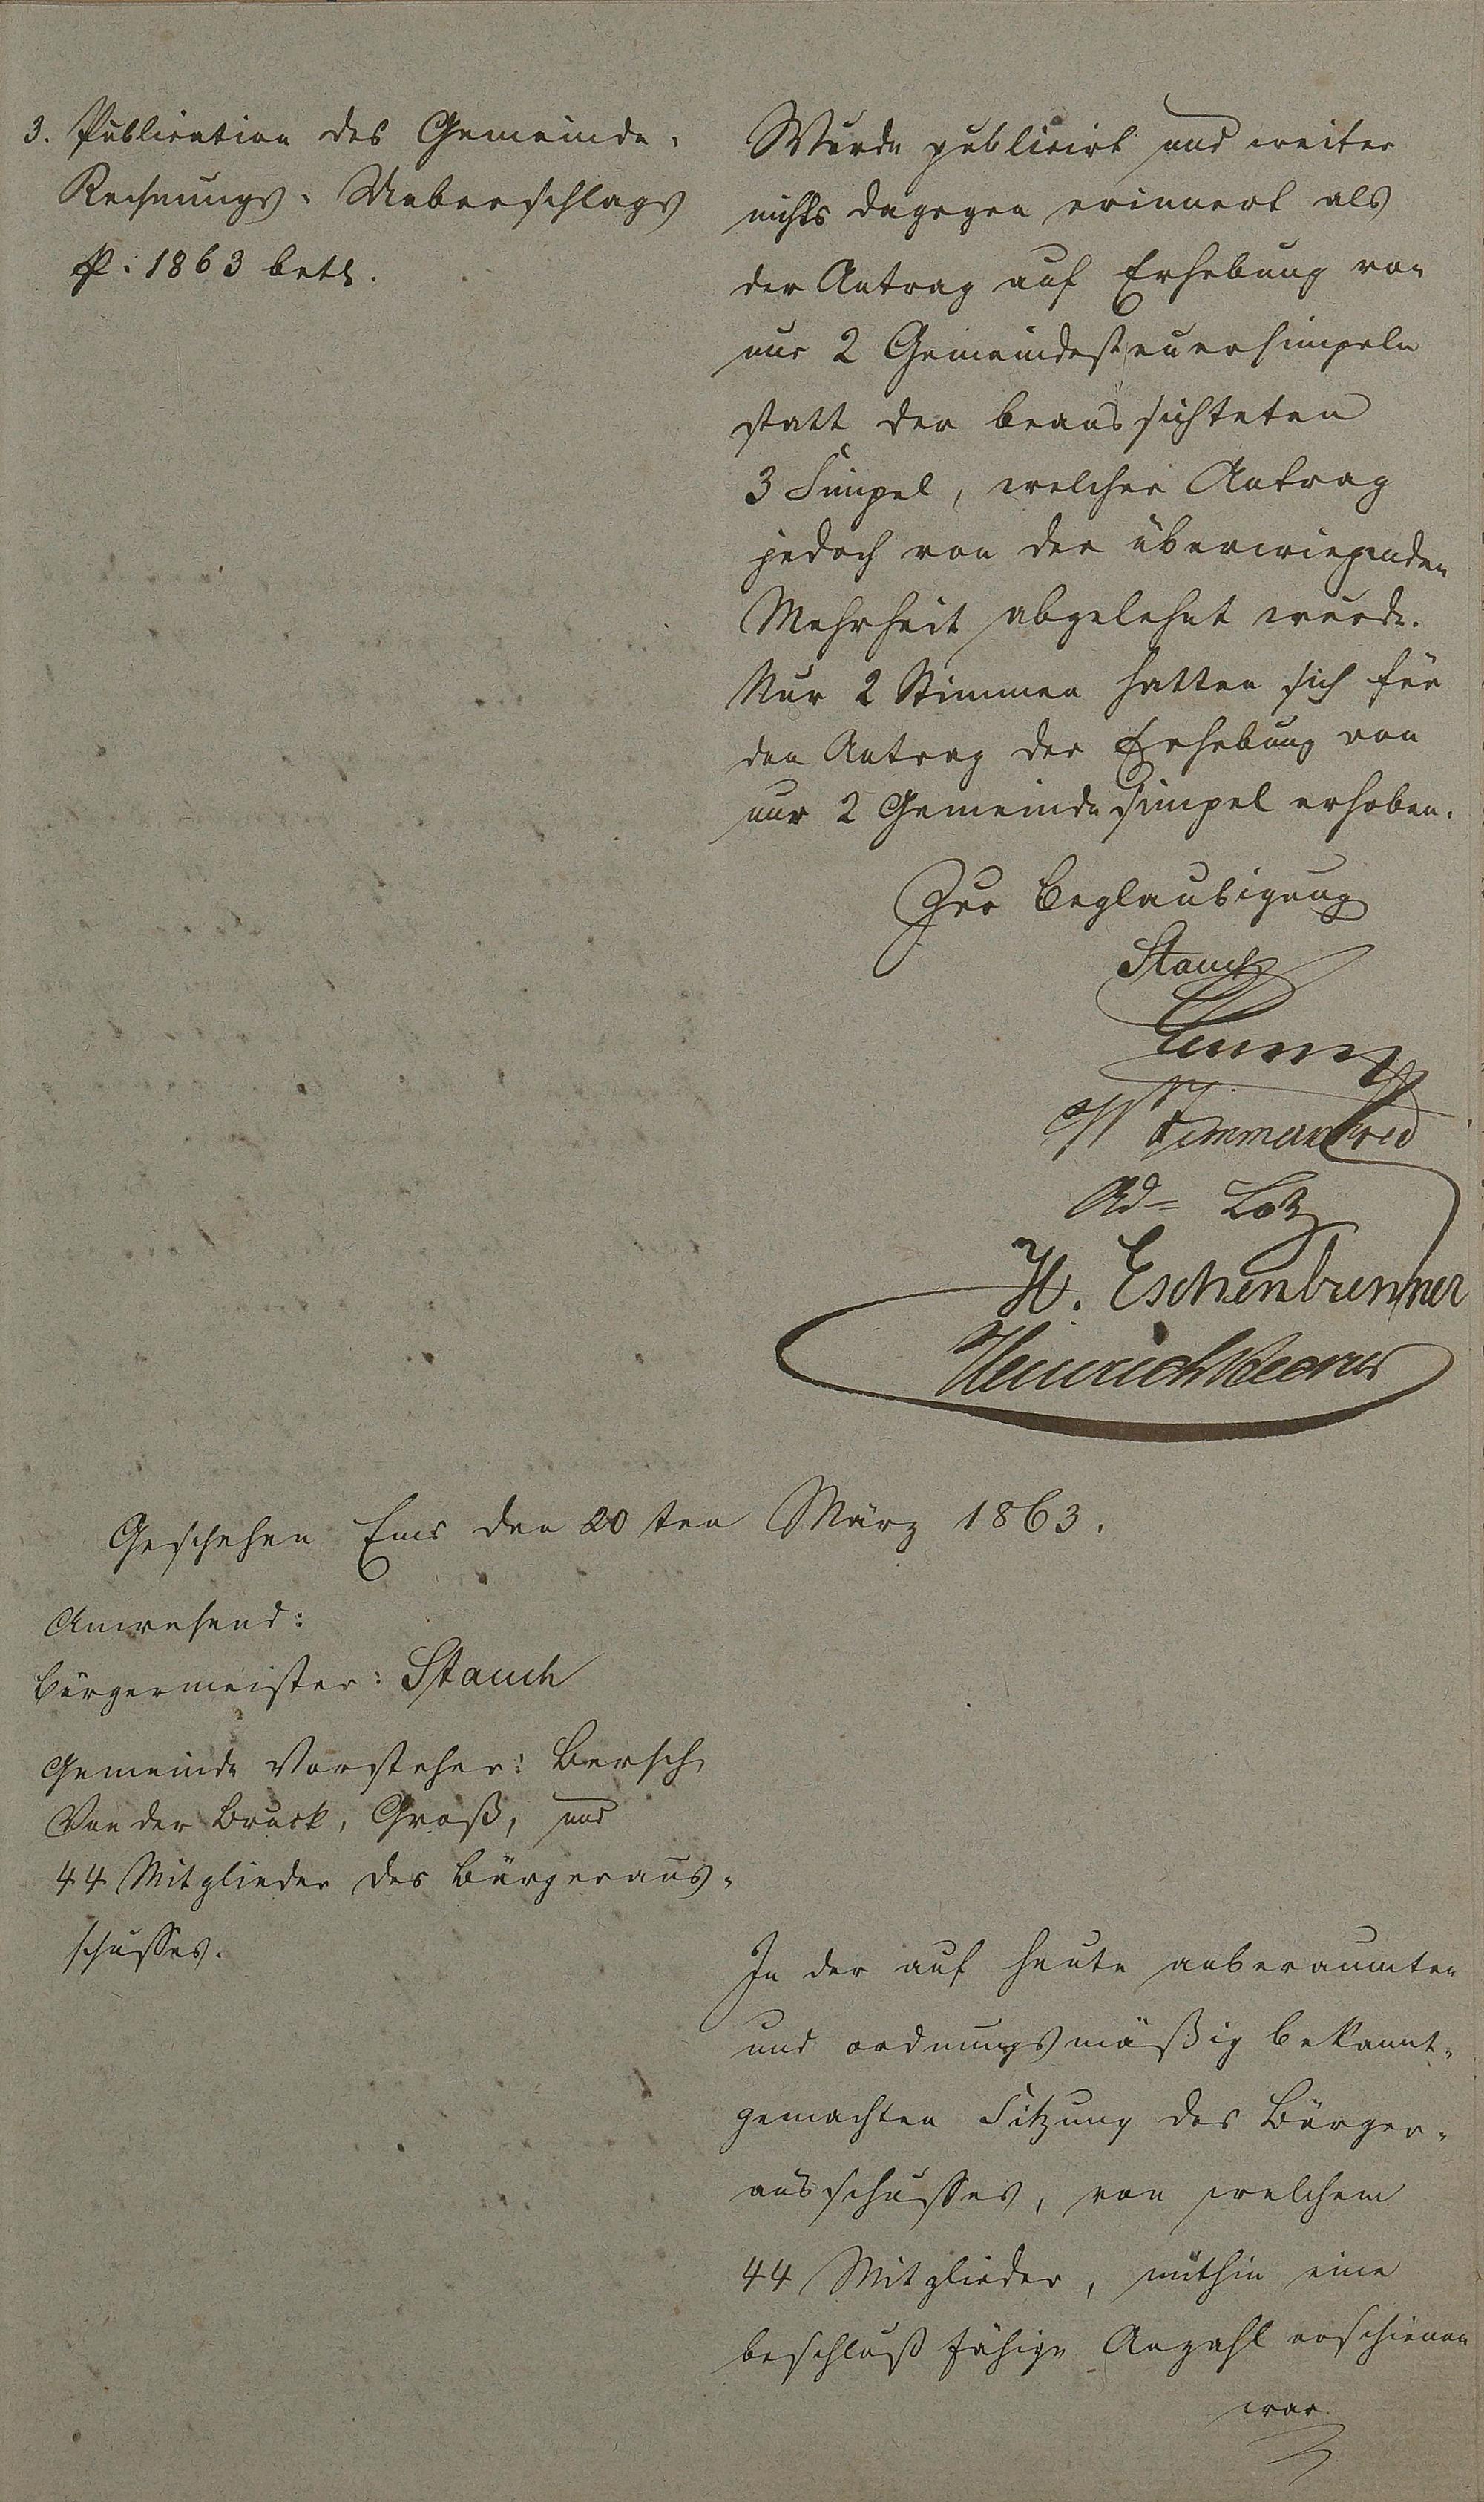 3. Publication des Gemeinde-
Rechnungs-Ueberschlags
p. 1863 betr.
Wurde publicirt und weiter
nichts dagegen erinnert als
der Antrag auf Erhebung von
nur 2 Gemeindesteuersimpeln
statt der beaussichteten
3 Simpel, welcher Antrag
jedoch von der überwiegenden
Mehrheit abgelehnt wurde.
Nur 2 Stimmen hatten sich für
den Antrag der Erhebung von
nur 2 Gemeindesimpel erhoben.
Zur Beglaubigung
Stauch
W Zimmerschied
Ad= Lotz
H. Eschenbrenner
Heinrich
Geschehen Ems den 20ten März 1863.
Anwesend:
Bürgermeister: Stauch
Gemeinde Vorsteher: Bersch,
Von der Bruck, Groß, und
44 Mitglieder des Bürgeraus-
schusses.
In der auf heute anberaumten
und ordnungsmäßig bekannt-
gemachten Sitzung des Bürger-
ausschusses, von welchem
44 Mitglieder, mithin eine
beschlußfähige Anzahl erschienen
war.